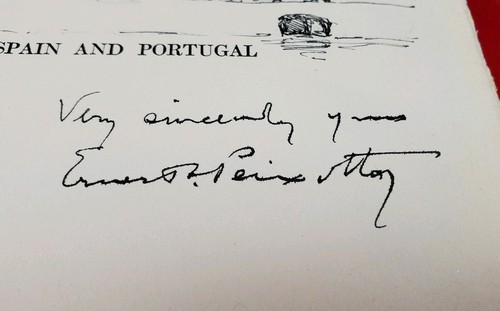 SPAIN AND PORTUGAL
Very sincerely yours
Ernest C. Peixotto